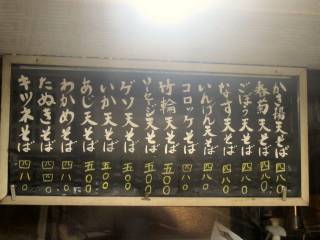 かき揚天そば 四八〇
春菊天そば 四八〇
ごぼう天そば 四八〇
なす天そば 四八〇
いんげん天そば 四八〇
コロッケそば 四八〇
竹輪天そば 五〇〇
ソーセージ天そば 五〇〇
ゲソ天そば 五〇〇
いか天そば 五〇〇
あじ天そば 五〇〇
わかめそば 四八〇
たぬきそば 四四〇
キツネそば 四八〇